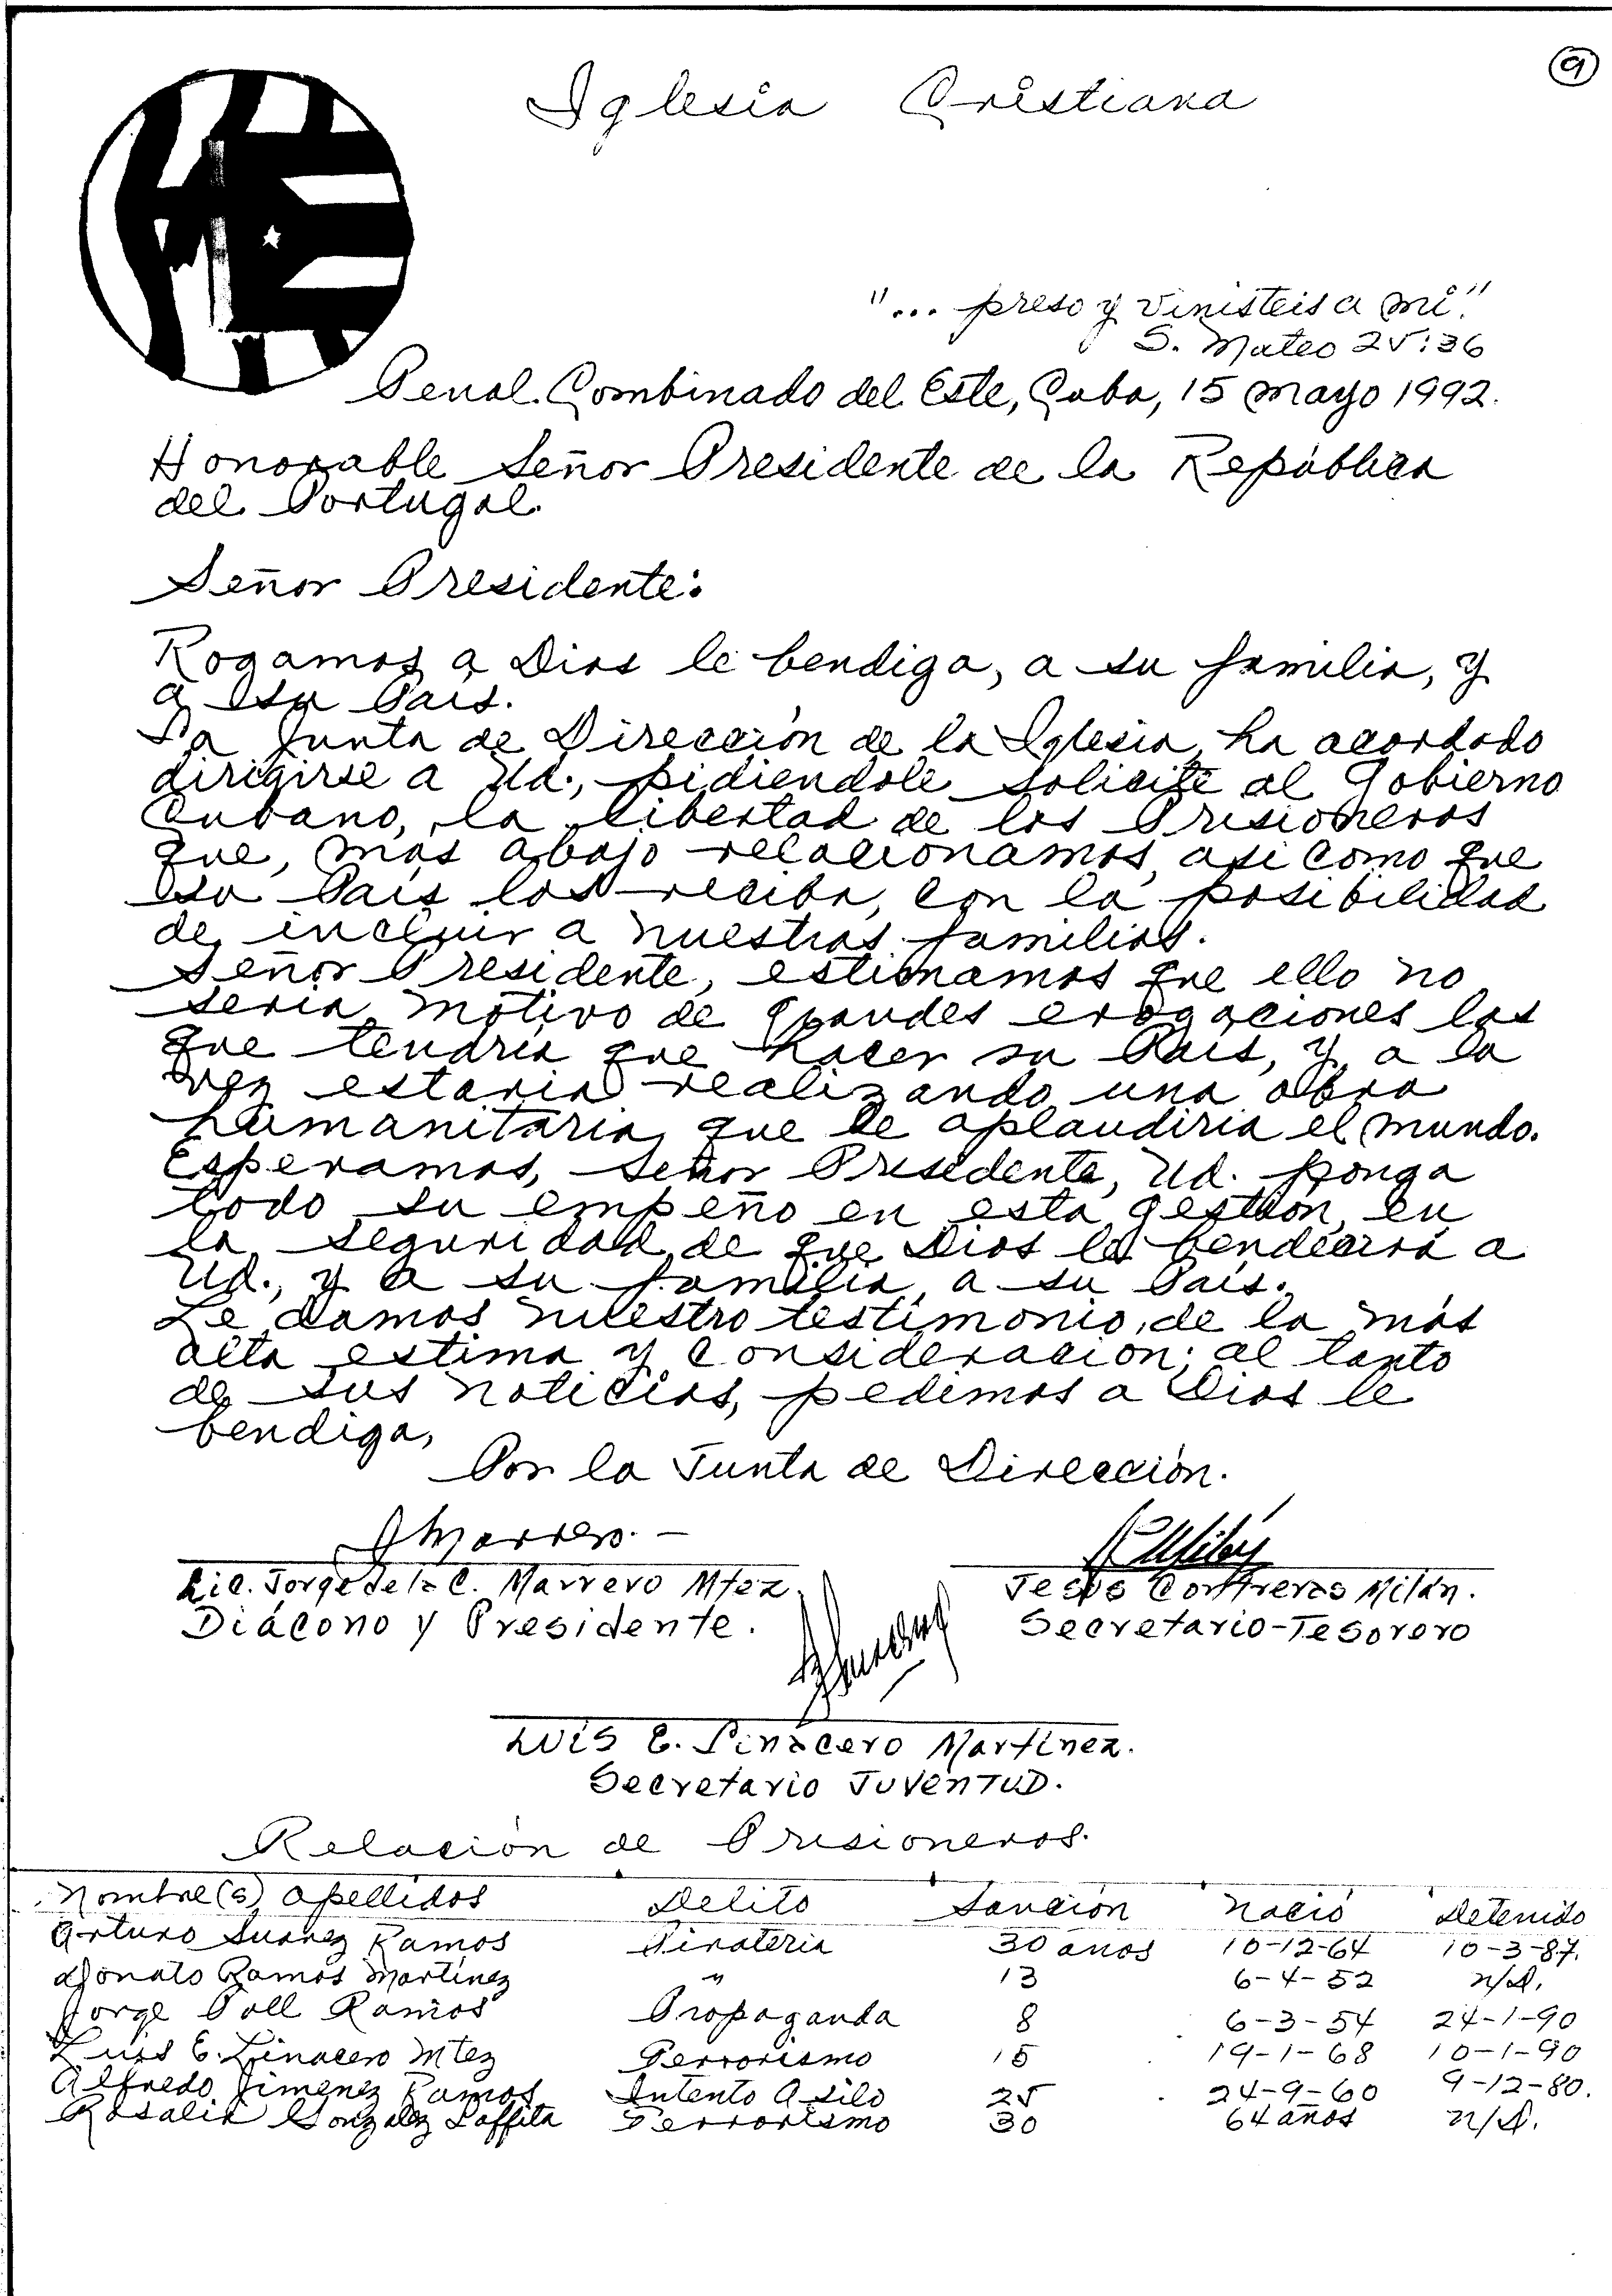 9
Iglesia Cristiana
"... preso y vinisteis a mí."
S. Mateo 25:36
Penal Combinado del Este, Cuba, 15 Mayo 1992.
Honorable Señor Presidente de la República
del Portugal.
Señor Presidente:
Rogamos a Dios le bendiga, a su familia, y
a esa País.
La Junta de Dirección de la Iglesia, ha acordado
dirigirse a Ud., pidiendole solicite al Gobierno
Cubano, la libertad de los Prisioneros
que, más abajo relacionamos, así como que
su País los reciba, con la posibilidad
de incluir a nuestras familias.
Señor Presidente, estimamos que ello no
sería motivo de grandes erogaciones las
que tendría que hacer su País, y, a la
vez estaría realizando una obra
humanitaria, que le aplaudiria el mundo.
Esperamos, Señor Presidente, Ud. ponga
todo su empeño en esta gestión, en
la seguridad, de que Dios le bendecirá a
Ud., y a su familia, a su País.
Le damos nuestro testimonio, de la más
alta estima y consideración; al tanto
de sus noticias, pedimos a Dios le
bendiga,
Por la Junta de Dirección.
JMarrero.-
Lic. Jorge de la C. Marrero Mtez.
Jesús Contreras Milán.
Diácono y Presidente.
Secretario-Tesorero
Luis E. Linacero Martínez.
Secretario Juventud.
Relación de Prisioneros.
Nombre(s) apellidos Delito Sanción Nació Detenido
Arturo Suárez Ramos Piratería 30 años 10-12-64 10-3-87.
Donato Ramos Martínez " 13 6-4-52 n/d.
Jorge Poll Ramos Propaganda 8 6-3-54 24-1-90
Luis E. Linacero Mtez Terrorismo 15 19-1-68 10-1-90
Alfredo Jimenez Ramos Intento Asilo 25 24-9-60 9-12-80.
Rosalia Gonzalez Laffita Terrorismo 30 64 años n/d.